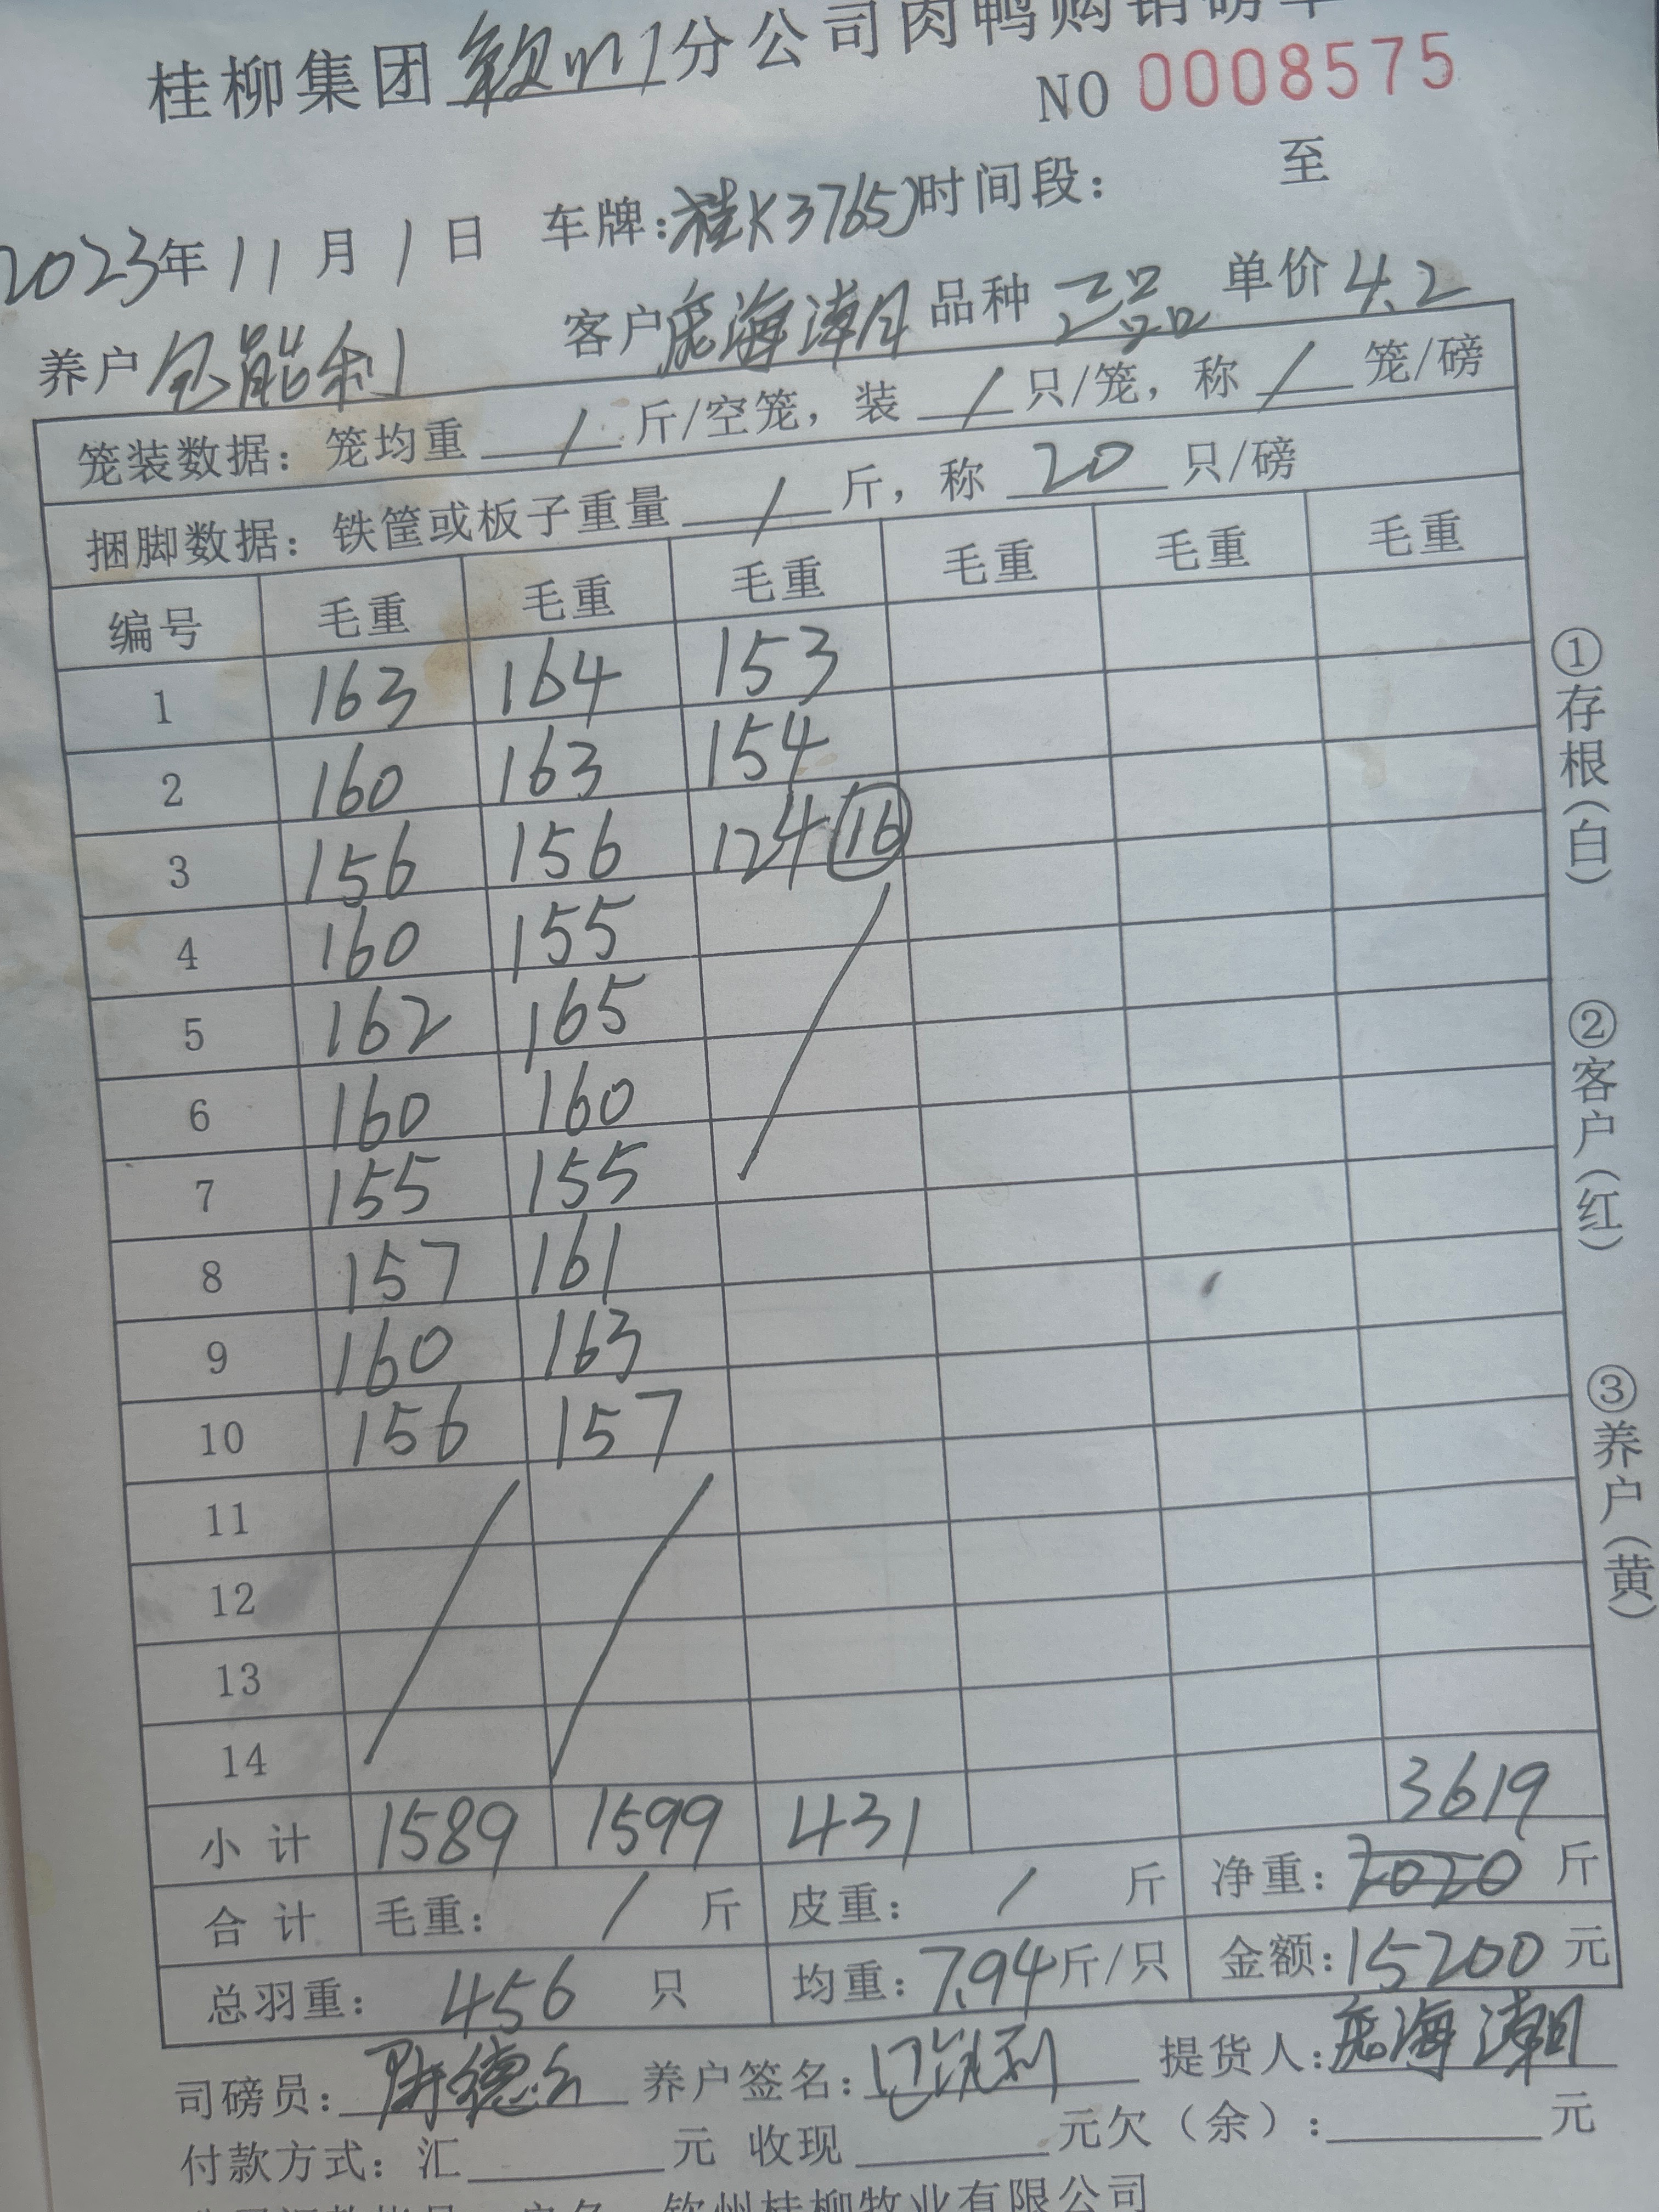 桂柳集团钦州分公司肉鸭购销磅单
NO 0008575
2023年11月1日 车牌:桂K3765 时间段: 至
养户 包能利 客户 庞海潮 品种 三品 单价 4.2
笼装数据: 笼均重 / 斤/空笼, 装 / 只/笼, 称 / 笼/磅
捆脚数据: 铁筐或板子重量 / 斤, 称 20 只/磅
编号 毛重 毛重 毛重 毛重 毛重 毛重
1 163 164 153
2 160 163 154
3 156 156 124 ⑯
4 160 155
5 162 165
6 160 160
7 155 155
8 157 161
9 160 163
10 156 157
11
12
13
14
小计 1589 1599 431 3619
合计 毛重: / 斤 皮重: / 斤 净重: 斤
总羽重: 456 只 均重: 7.94 斤/只 金额: 15200 元
司磅员: 养户签名: 包能利 提货人: 庞海潮
付款方式: 汇 元 收现 元欠(余): 元
钦州桂柳牧业有限公司
①存根(白)
②客户(红)
③养户(黄)